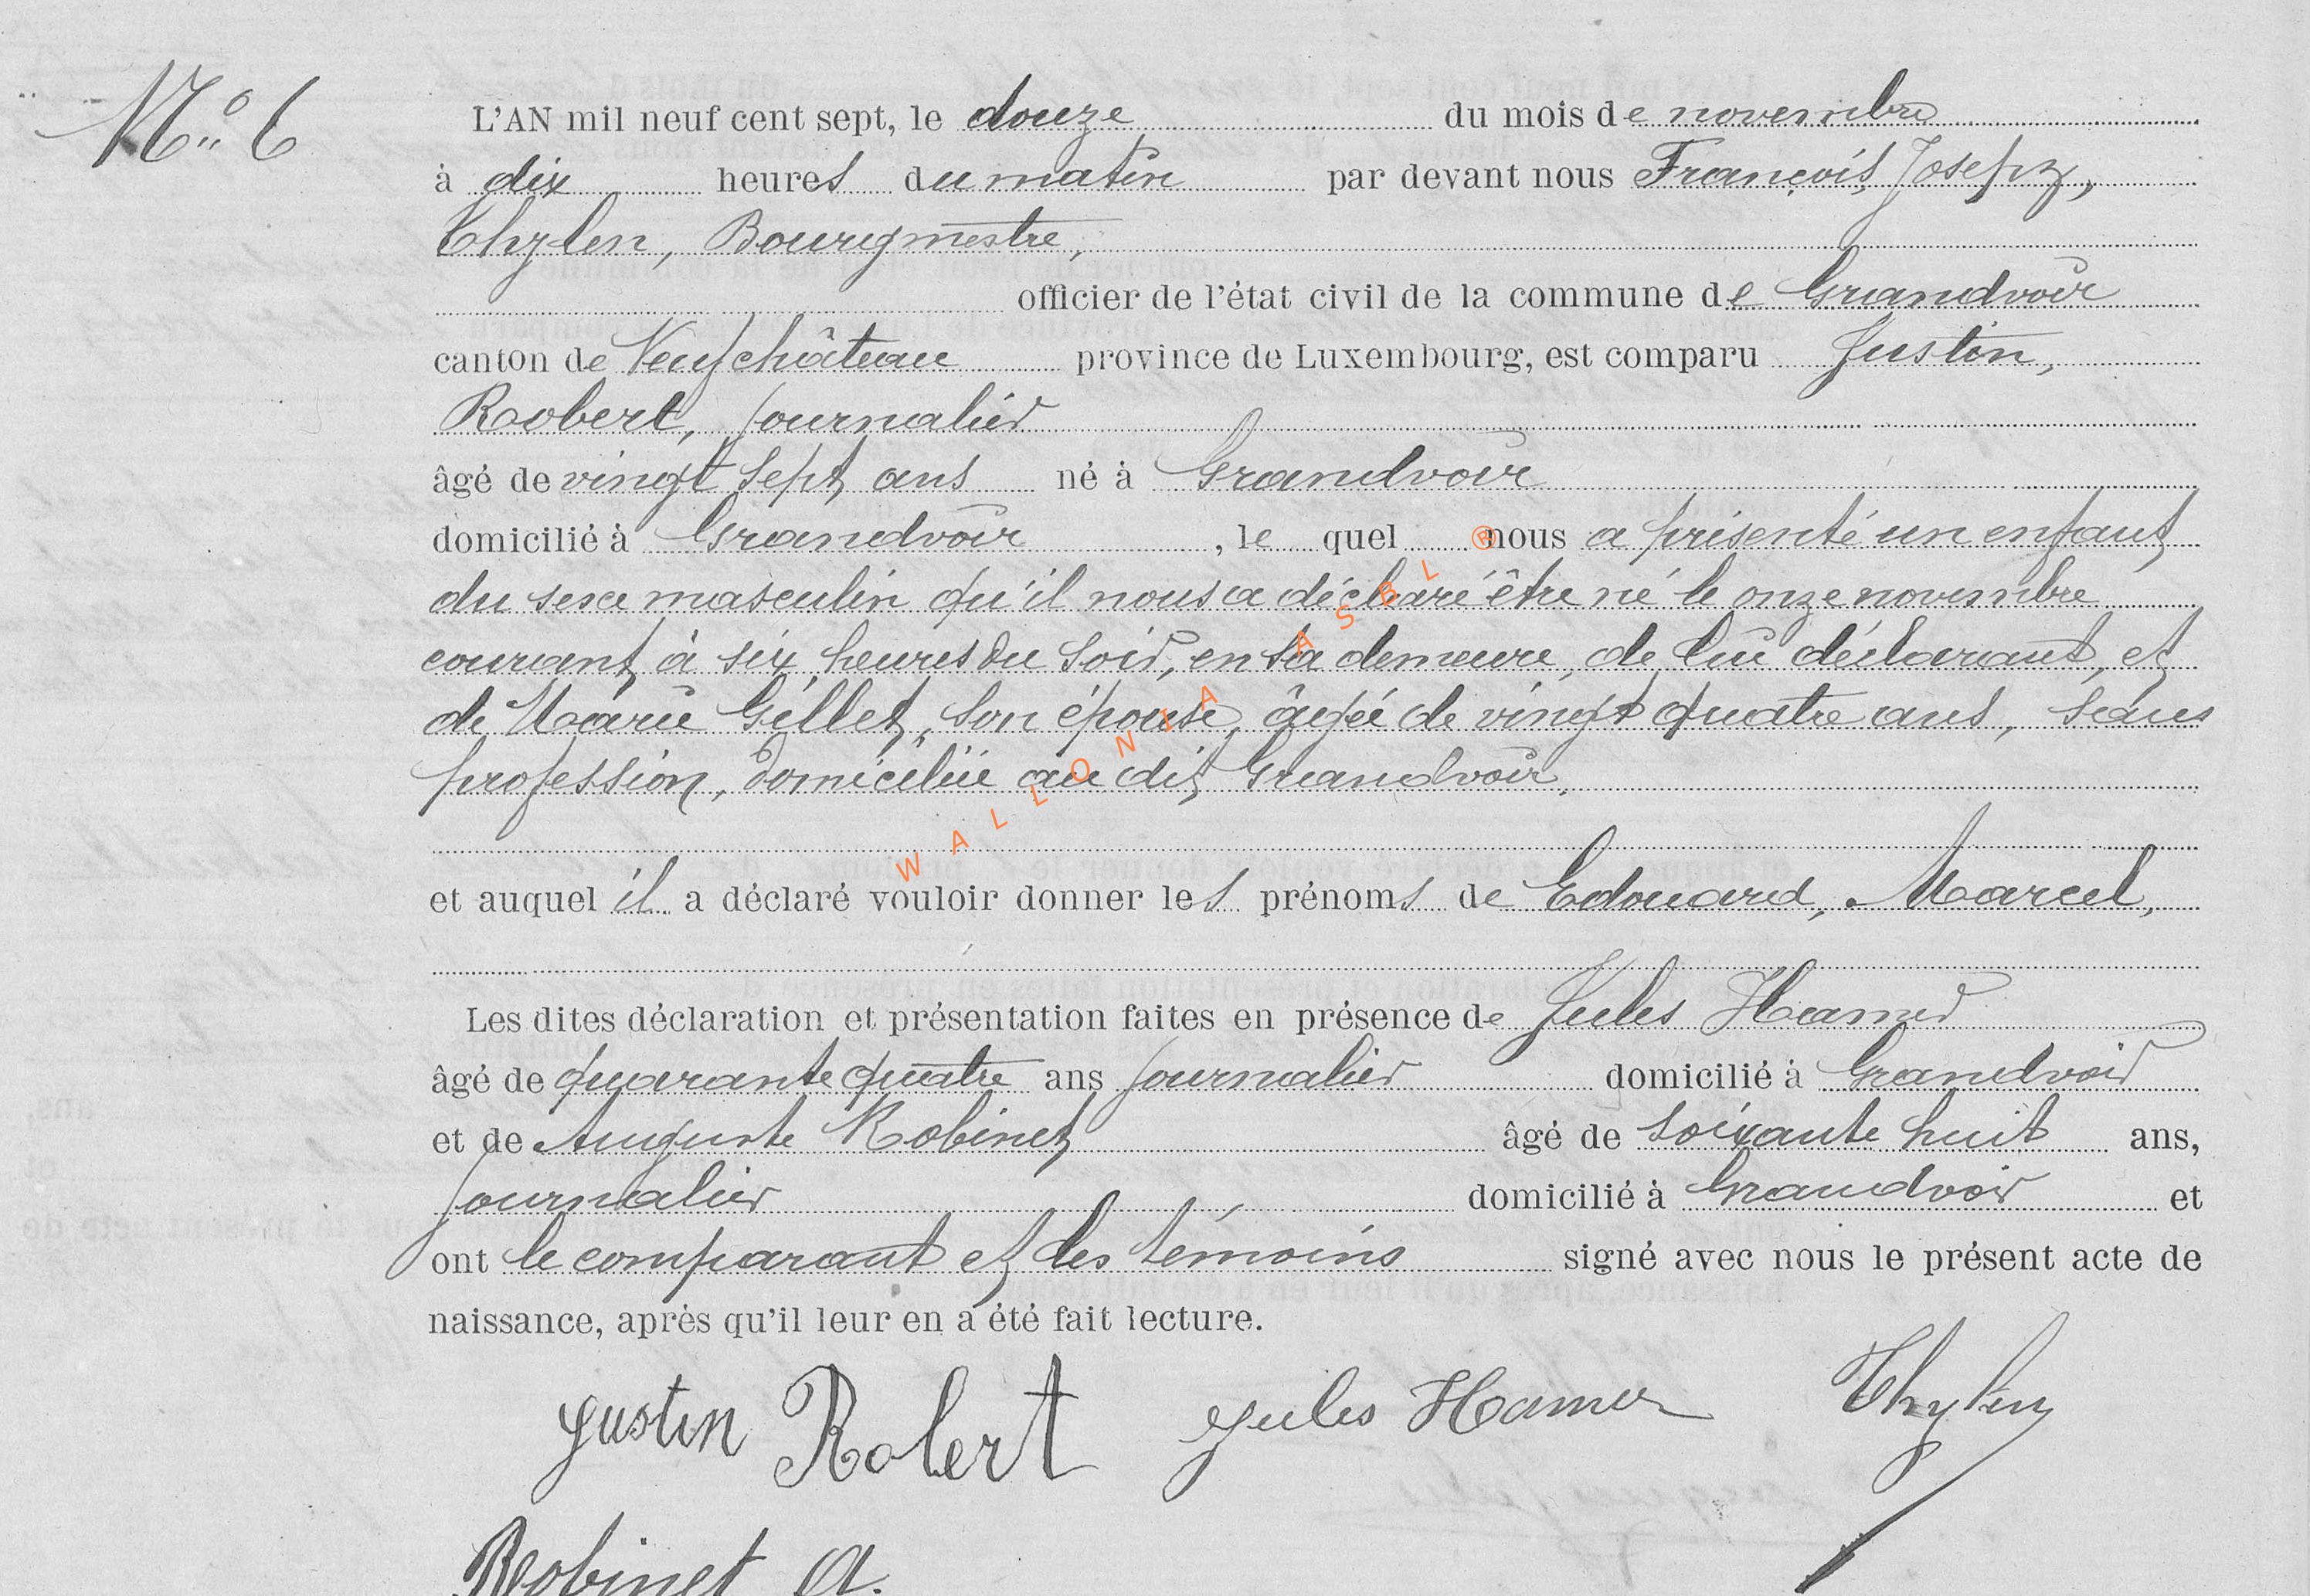 N° 6
L'AN mil neuf cent sept, le douze du mois de novembre
à dix heures du matin par devant nous François, Joseph,
Thylen, Bourgmestre,
officier de l'état civil de la commune de Grandvoir
canton de Neufchâteau province de Luxembourg, est comparu Justin,
Robert, journalier
âgé de vingt sept ans né à Grandvoir
domicilié à Grandvoir, le quel nous a présenté un enfant
du sexe masculin qu'il nous a déclaré être né le onze novembre
courant à six heures du soir, en sa demeure, de lui déclarant, et
de Marie Gillet, son épouse, âgée de vingt quatre ans, sans
profession, domiciliée au dit Grandvoir.
et auquel il a déclaré vouloir donner les prénoms de Edouard, Marcel,
Les dites déclaration et présentation faites en présence de Jules Hamer
âgé de quarante quatre ans journalier domicilié à Grandvoir
et de Auguste Robinet âgé de soixante huit ans,
journalier domicilié à Grandvoir et
ont le comparant et les témoins signé avec nous le présent acte de
naissance, après qu'il leur en a été fait lecture.
Justin Robert Jules Hamer Thylen
Robinet A.
WALLONIA ASBL ®